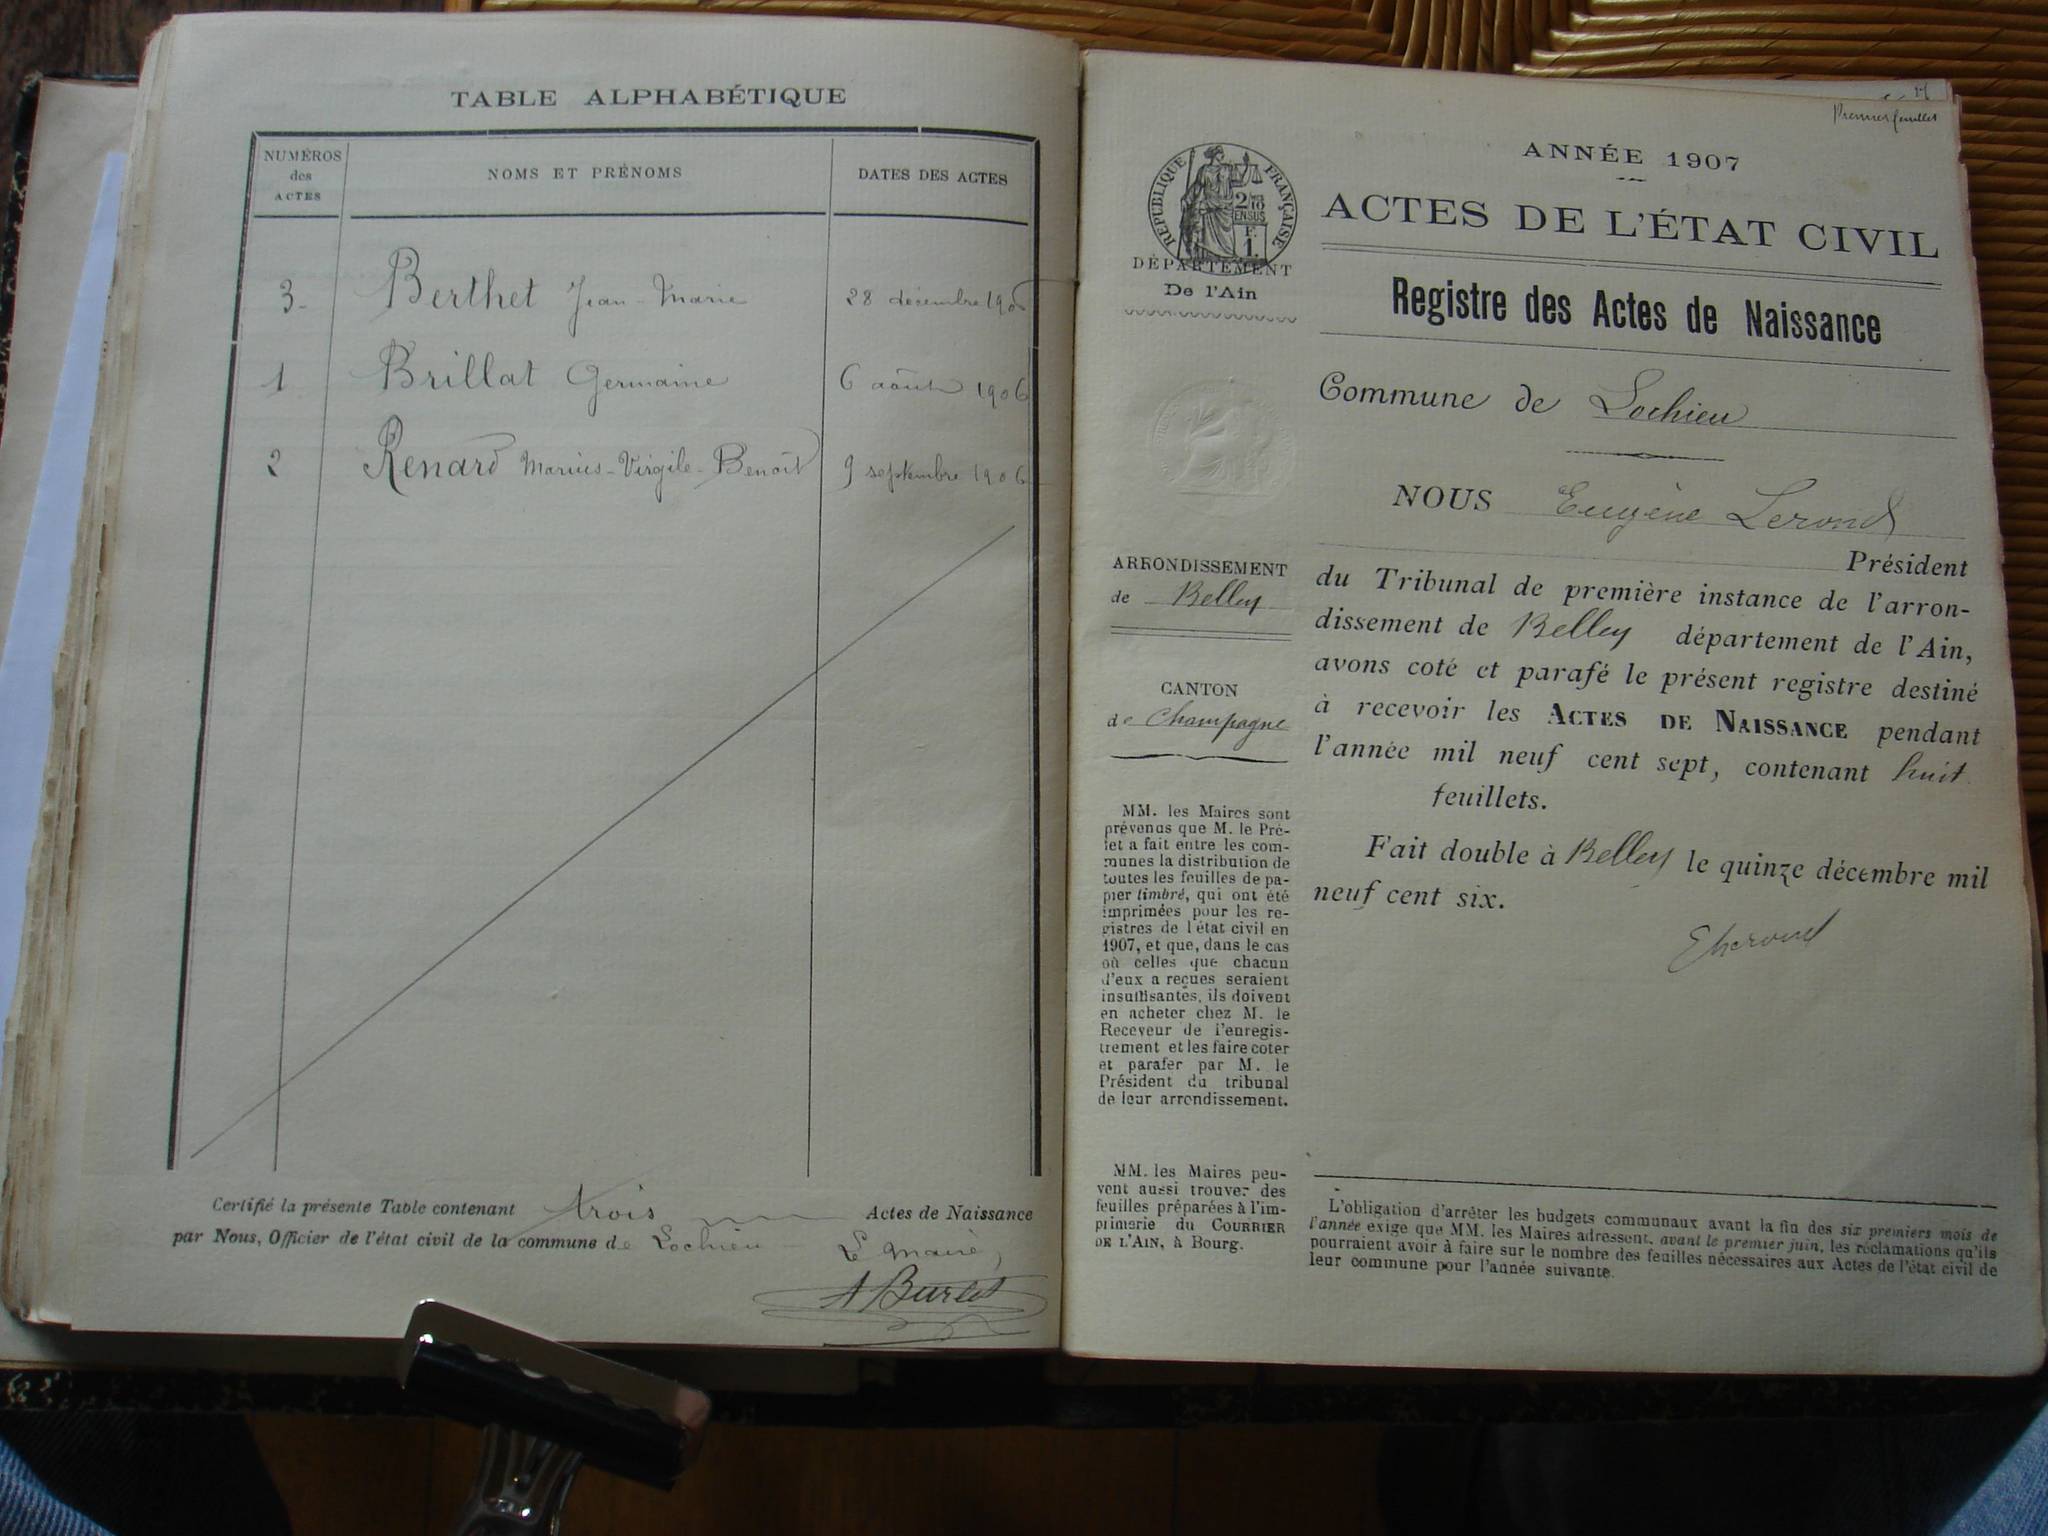 TABLE ALPHABÉTIQUE
NUMÉROS
des
ACTES
NOMS ET PRÉNOMS
DATES DES ACTES
3 Berthet Jean-Marie 28 décembre 1906
1 Brillat Germaine 6 août 1906
2 Renard Marius-Virgile-Benoit 9 septembre 1906
Certifié la présente Table contenant trois Actes de Naissance
par Nous, Officier de l'état civil de la commune de Lochieu
Le Maire,
A Burlet
Premier feuillet
RÉPUBLIQUE FRANÇAISE
2/10
EN SUS
F.
1.
DÉPARTEMENT
De l'Ain
ANNÉE 1907
ACTES DE L'ÉTAT CIVIL
Registre des Actes de Naissance
Commune de Lochieu
NOUS Eugène Lerond
Président
du Tribunal de première instance de l'arron-
dissement de Belley département de l'Ain,
avons coté et parafé le présent registre destiné
à recevoir les ACTES DE NAISSANCE pendant
l'année mil neuf cent sept, contenant huit
feuillets.
Fait double à Belley le quinze décembre mil
neuf cent six.
ARRONDISSEMENT
de Belley
CANTON
de Champagne
MM. les Maires sont
prévenus que M. le Pré-
fet a fait entre les com-
munes la distribution de
toutes les feuilles de pa-
pier timbré, qui ont été
imprimées pour les re-
gistres de l'état civil en
1907, et que, dans le cas
où celles que chacun
d'eux a reçues seraient
insuffisantes, ils doivent
en acheter chez M. le
Receveur de l'enregis-
trement et les faire coter
et parafer par M. le
Président du tribunal
de leur arrondissement.
MM. les Maires peu-
vent aussi trouver des
feuilles préparées à l'im-
primerie du COURRIER
DE L'AIN, à Bourg.
L'obligation d'arrêter les budgets communaux avant la fin des six premiers mois de
l'année exige que MM. les Maires adressent, avant le premier juin, les réclamations qu'ils
pourraient avoir à faire sur le nombre des feuilles nécessaires aux Actes de l'état civil de
leur commune pour l'année suivante.